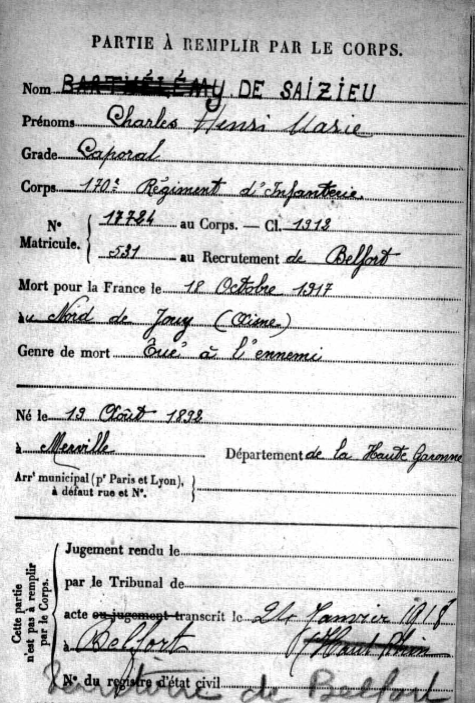 PARTIE À REMPLIR PAR LE CORPS.
Nom BARTHÉLÉMY DE SAIZIEU
Prénoms Charles Henri Marie
Grade Caporal
Corps 170e Régiment d'Infanterie
N° Matricule. { 17724 au Corps. — Cl. 1912
531 au Recrutement de Belfort
Mort pour la France le 18 Octobre 1917
au Nord de Jouy (Aisne)
Genre de mort Tué à l'ennemi
Né le 13 Août 1892
à Merville Département de la Haute Garonne
Arrt municipal (pr Paris et Lyon), à défaut rue et N°.
Cette partie n'est pas à remplir par le Corps.
Jugement rendu le
par le Tribunal de
acte ou jugement transcrit le 24 Janvier 1918
à Belfort Haut Rhin
N° du registre d'état civil
Territoire de Belfort